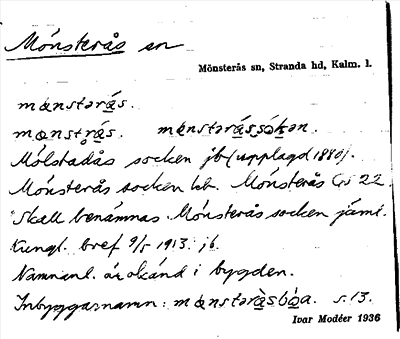 Mönsterås sn
Mönsterås sn, Stranda hd, Kalm. l.
mønstərås.
mønstrås. mønstəråssåkən.
Mölstadås socken jb (upplagd 1880).
Mönsterås socken kb. Mönsterås GS 22.
Skall benämnas Mönsterås socken jäml.
Kungl. bref 9/5 1913. jb.
Namnanl. är okänd i bygden.
Inbyggarnamn: mønstəråsbo̱a. s. 13.
Ivar Modéer 1936